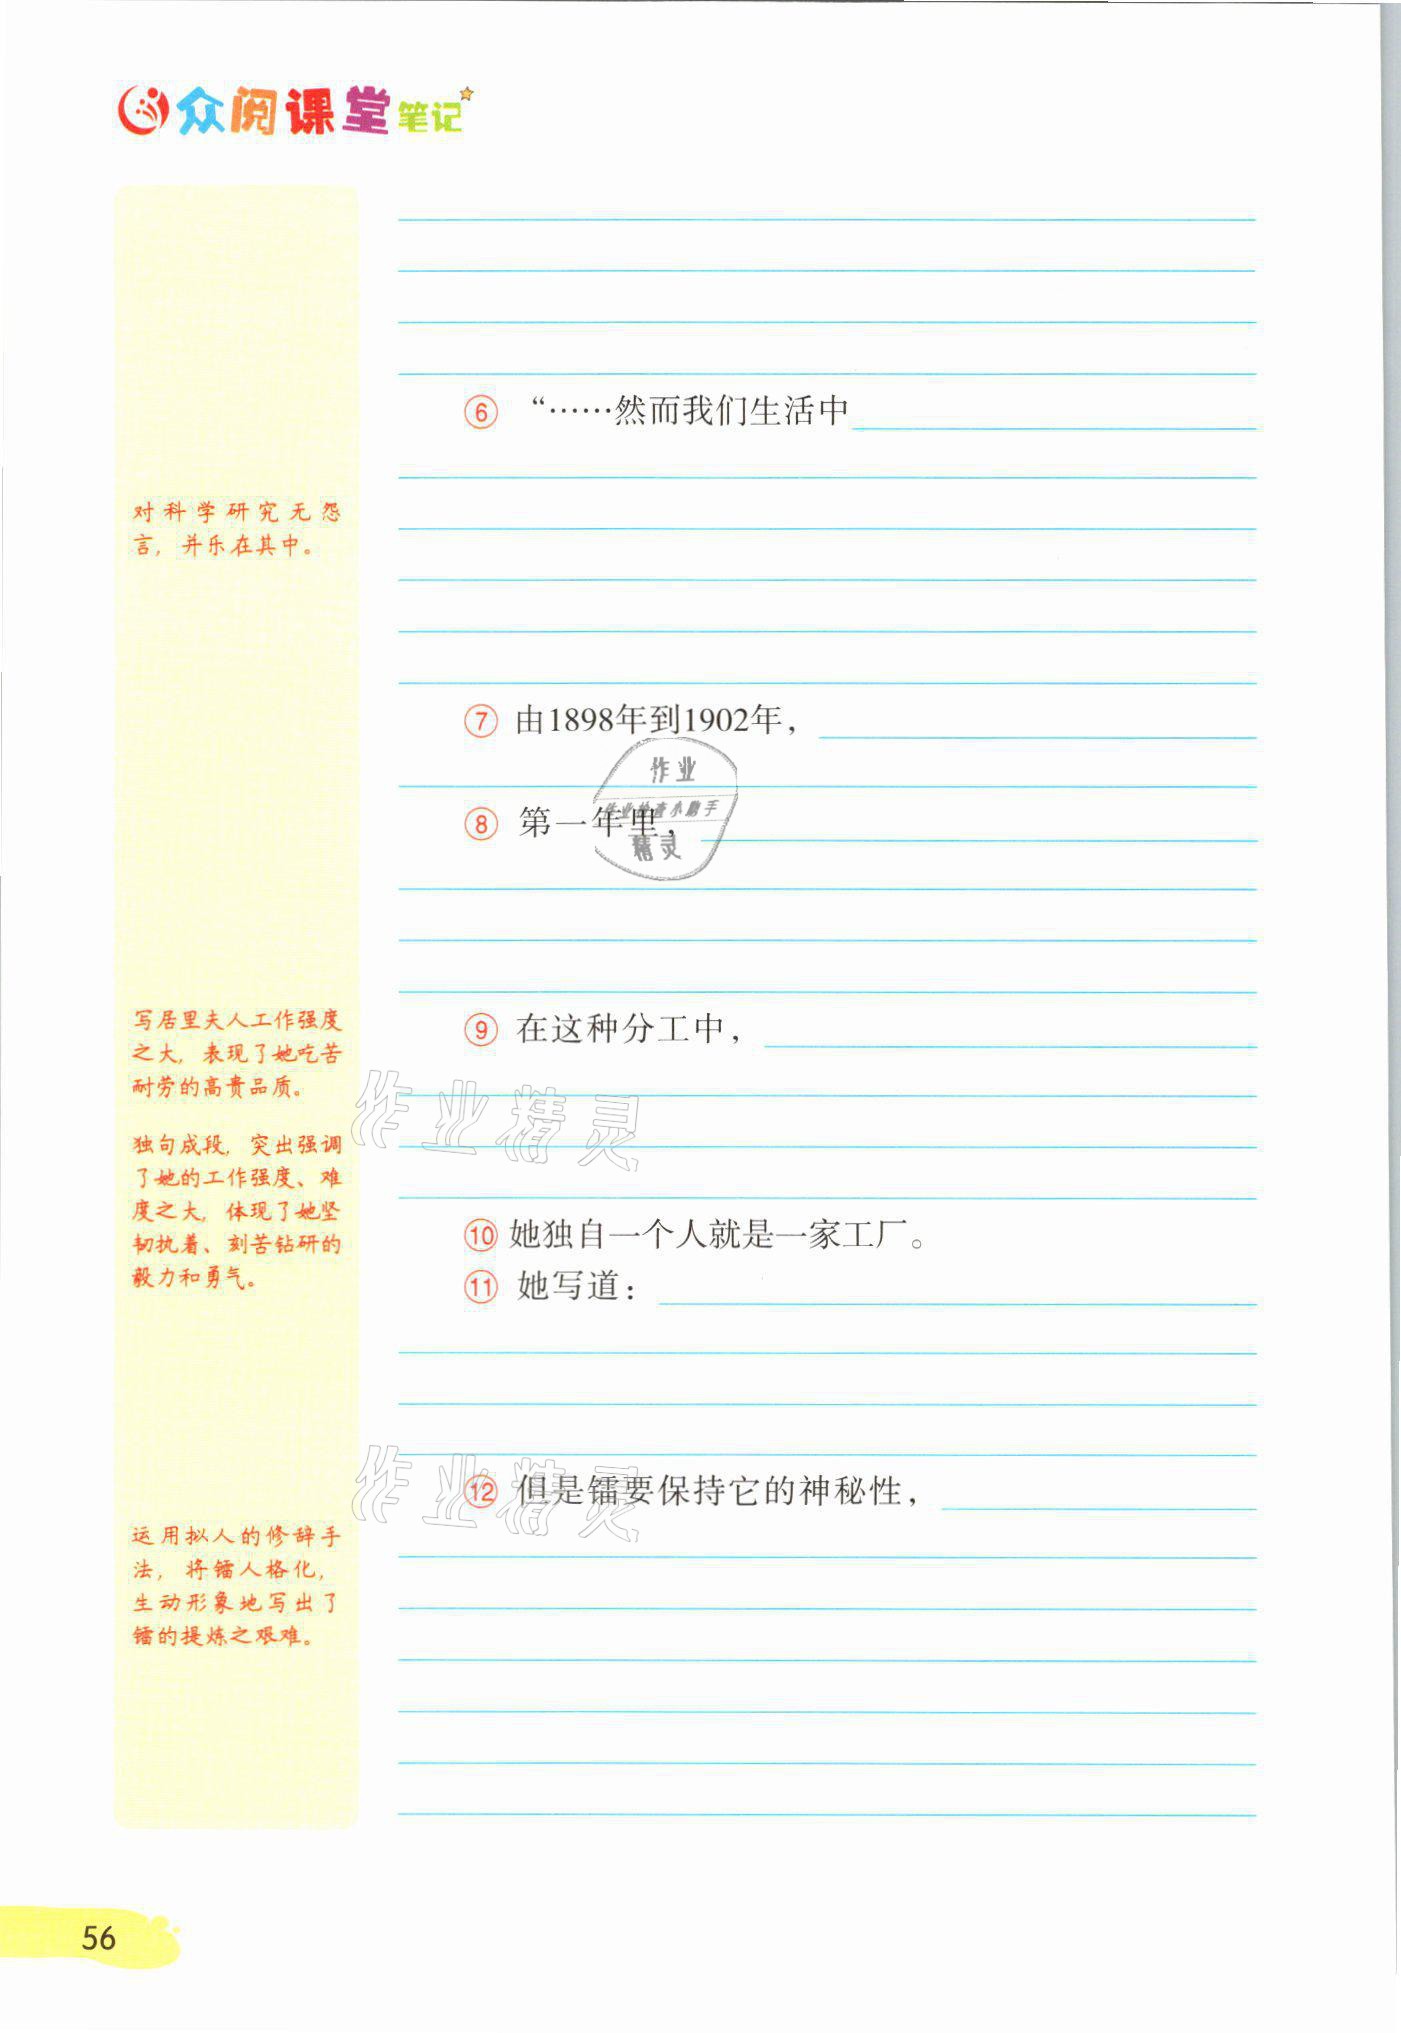 众阅课堂笔记
⑥ “……然而我们生活中
对科学研究无怨
言，并乐在其中。
⑦ 由1898年到1902年，
作业
作业检查小助手
精灵
⑧ 第一年里，
⑨ 在这种分工中，
写居里夫人工作强度
之大，表现了她吃苦
耐劳的高贵品质。
作业精灵
独句成段，突出强调
了她的工作强度、难
度之大，体现了她坚
韧执着、刻苦钻研的
毅力和勇气。
⑩ 她独自一个人就是一家工厂。
⑪ 她写道：
⑫ 但是镭要保持它的神秘性，
作业精灵
运用拟人的修辞手
法，将镭人格化，
生动形象地写出了
镭的提炼之艰难。
56